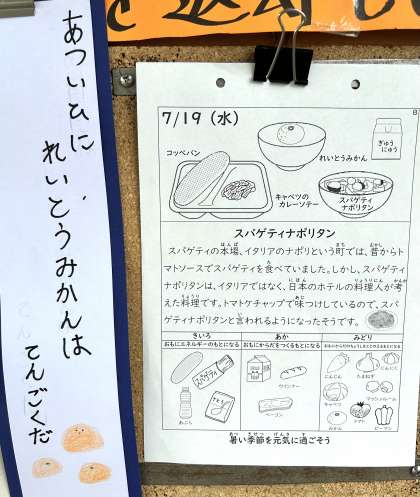 あついひに、
れいとうみかんは
てんごくだ
7/19 (水)
コッペパン
れいとうみかん
ぎゅうにゅう
キャベツの
カレーソテー
スパゲティ
ナポリタン
スパゲティナポリタン
スパゲティの本場、イタリアのナポリという町では、昔からト
マトソースでスパゲティを食べていました。しかし、スパゲティ
ナポリタンは、イタリアではなく、日本のホテルの料理人が考
えた料理です。トマトケチャップで味つけしているので、スパ
ゲティナポリタンと言われるようになったそうです。
きいろ
あか
みどり
おもにエネルギーのもとになる
おもにからだをつくるもとになる
おもにからだのちょうしをととのえるもとになる
スパゲティ
ウインナー
ベーコン
あぶら
さとう
にんじん
たまねぎ
にんにく
キャベツ
マッシュルーム
みかん
トマト
ピーマン
暑い季節を元気に過ごそう